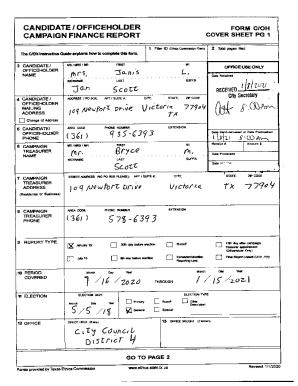 CANDIDATE / OFFICEHOLDER
CAMPAIGN FINANCE REPORT
FORM C/OH
COVER SHEET PG 1
The C/OH Instruction Guide explains how to complete this form.
1 Filer ID (Ethics Commission Filers)
2 Total pages filed:
3 CANDIDATE / OFFICEHOLDER NAME
MS / MRS / MR FIRST MI
Mrs. Janis L.
NICKNAME LAST SUFFIX
Jan Scott
OFFICE USE ONLY
Date Received
RECEIVED 1/8/2021
City Secretary
4 CANDIDATE / OFFICEHOLDER MAILING ADDRESS
Change of Address
ADDRESS / PO BOX; APT / SUITE #; CITY; STATE; ZIP CODE
109 Newport Drive Victoria TX 77904
5 CANDIDATE / OFFICEHOLDER PHONE
AREA CODE PHONE NUMBER EXTENSION
(361) 935-6393
Date Hand-delivered or Date Postmarked
Receipt # Amount $
6 CAMPAIGN TREASURER NAME
MS / MRS / MR FIRST MI
Mr. Bryce M.
NICKNAME LAST SUFFIX
Scott
Date Processed
7 CAMPAIGN TREASURER ADDRESS
(Residence or Business)
STREET ADDRESS (NO PO BOX PLEASE); APT / SUITE #; CITY; STATE; ZIP CODE
109 Newport Drive Victoria TX 77904
8 CAMPAIGN TREASURER PHONE
AREA CODE PHONE NUMBER EXTENSION
(361) 578-6393
9 REPORT TYPE
January 15
30th day before election
Runoff
15th day after campaign treasurer appointment (Officeholder Only)
July 15
8th day before election
10 PERIOD COVERED
Month Day Year
9/16/2020 THROUGH 1/15/2021
11 ELECTION
ELECTION DATE
Month Day Year
5/5/18
ELECTION TYPE
Primary
Runoff
Other Description
General
Special
12 OFFICE
OFFICE HELD (if any)
City Council
District 4
13 OFFICE SOUGHT (if known)
GO TO PAGE 2
Forms provided by Texas Ethics Commission
www.ethics.state.tx.us
Revised 1/1/2020